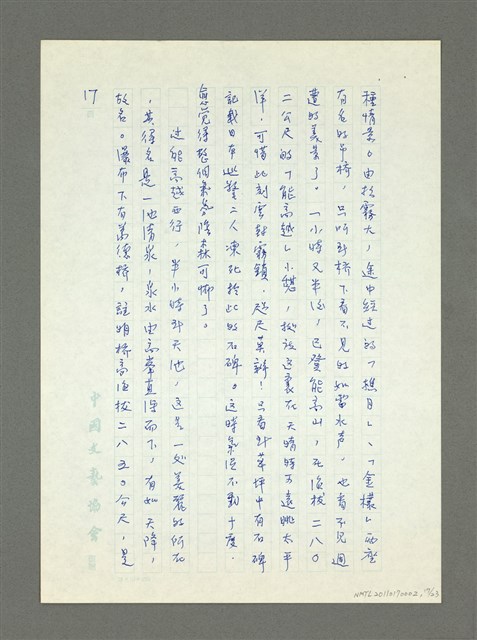 種情景。由於霧大，途中經過的「樵月」、「金樑」兩座
有名的吊橋，只听到橋下看不見的如雷水声，也看不見週
遭的美景了。一小時又半后，已登能高山，在海拔二八〇
二公尺的「能高越」小憩，据説這裏在天晴時可遠眺太平
洋，可惜此刻雲封霧鎖，咫尺莫辨！只看到草坪中有石碑
記載日本巡警二人凍死於此的石碑。這時氣溫不到十度，
愈覚得整個氣氛陰森可怖了。
过能高越西行，半小時到天池，這是一処美麗的所在
，其得名是一池清泉，泉水由高峯直瀉而下，有如天降，
故名。瀑布下有萬德橋，註明橋高海拔二八五〇公尺，是
17
中國文藝協會
NMTL20110170002, 17/23